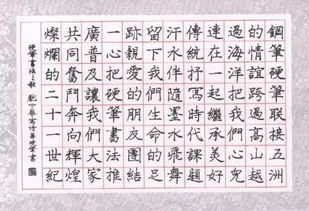 鋼筆硬筆聯接五洲
的情誼跨過高山越
過海洋把我們心兒
連在一起繼承美好
傳統抒寫時代課題
汗水伴隨墨水飛舞
留下我們生命的足
跡親愛的朋友團結
一心把硬筆書法推
廣普及讓我們大家
共同奮鬥奔向輝煌
燦爛的二十一世紀
硬筆書法之歌